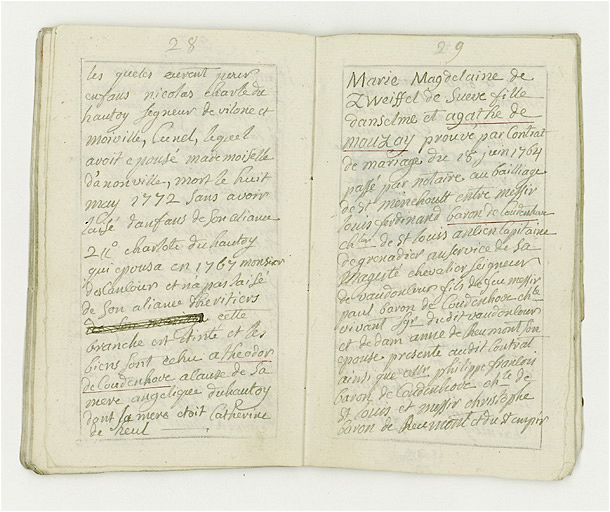 28
les queles eurent pour
enfans nicolas charle de
hautoy segneur de vilone et
moiville, Cunel, lequel
avoit epousé mademoiselle
d'anoiville, mort le huit
may 1772 sans avoir
laisé danfans de son aliance
charlote du hautoy
qui epousa en 1767 monsier
descanlour et na pas laisé
de son aliance d'heritiers
cette
branche est etinte et les
biens sont echu a theodor
de Coudenhove a cause de sa
mere angelique du hautoy
dont sa mere etoit catherine
de heul
29
Marie Magdelaine de
Zweiffel de Sueve fille
danselme et agathe de
mouzay, prouvé par Contrat
de mariage du 16 juin 1764
passé par notaire au bailliage
de st menehoult entre messir
louis ferdinand baron de Coudenhove
chlier de st louis ancien capitaine
de grenadier au service de sa
Magesté chevalier seigneur
de vaudonlour fils de feu messir
paul baron de Coudenhove chl
vivant sgr dudit vaudonlour
et de dam anne de heumont son
epouse presente audit Contrat
ainsi que philippe francois
baron de Coudenhove chl de
st louis et messir christophe
baron de heumont et du st empir